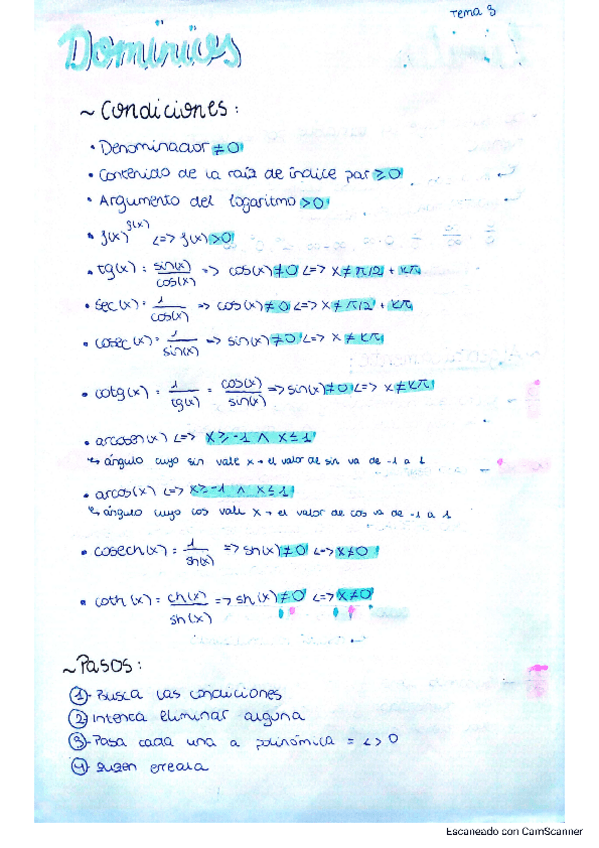 Tema 3
Dominios
~ Condiciones:
• Denominador ≠ 0
• Contenido de la raíz de índice par ≥ 0
• Argumento del logaritmo > 0
• f(x)^g(x) <=> f(x) > 0
• tg(x) = sin(x)/cos(x) => cos(x) ≠ 0 <=> x ≠ π/2 + kπ
• sec(x) = 1/cos(x) => cos(x) ≠ 0 <=> x ≠ π/2 + kπ
• cosec(x) = 1/sin(x) => sin(x) ≠ 0 <=> x ≠ kπ
• cotg(x) = 1/tg(x) = cos(x)/sin(x) => sin(x) ≠ 0 <=> x ≠ kπ
• arcosen(x) <=> x ≥ -1 ∧ x ≤ 1
↳ ángulo cuyo sin vale x → el valor de sin va de -1 a 1
• arcos(x) <=> x ≥ -1 ∧ x ≤ 1
↳ ángulo cuyo cos vale x → el valor de cos va de -1 a 1
• cosech(x) = 1/sh(x) => sh(x) ≠ 0 <=> x ≠ 0
• coth(x) = ch(x)/sh(x) => sh(x) ≠ 0 <=> x ≠ 0
~ Pasos:
①- Busca las condiciones
② Intenta eliminar alguna
③- Pasa cada una a polinómica = < > 0
④-
Escaneado con CamScanner